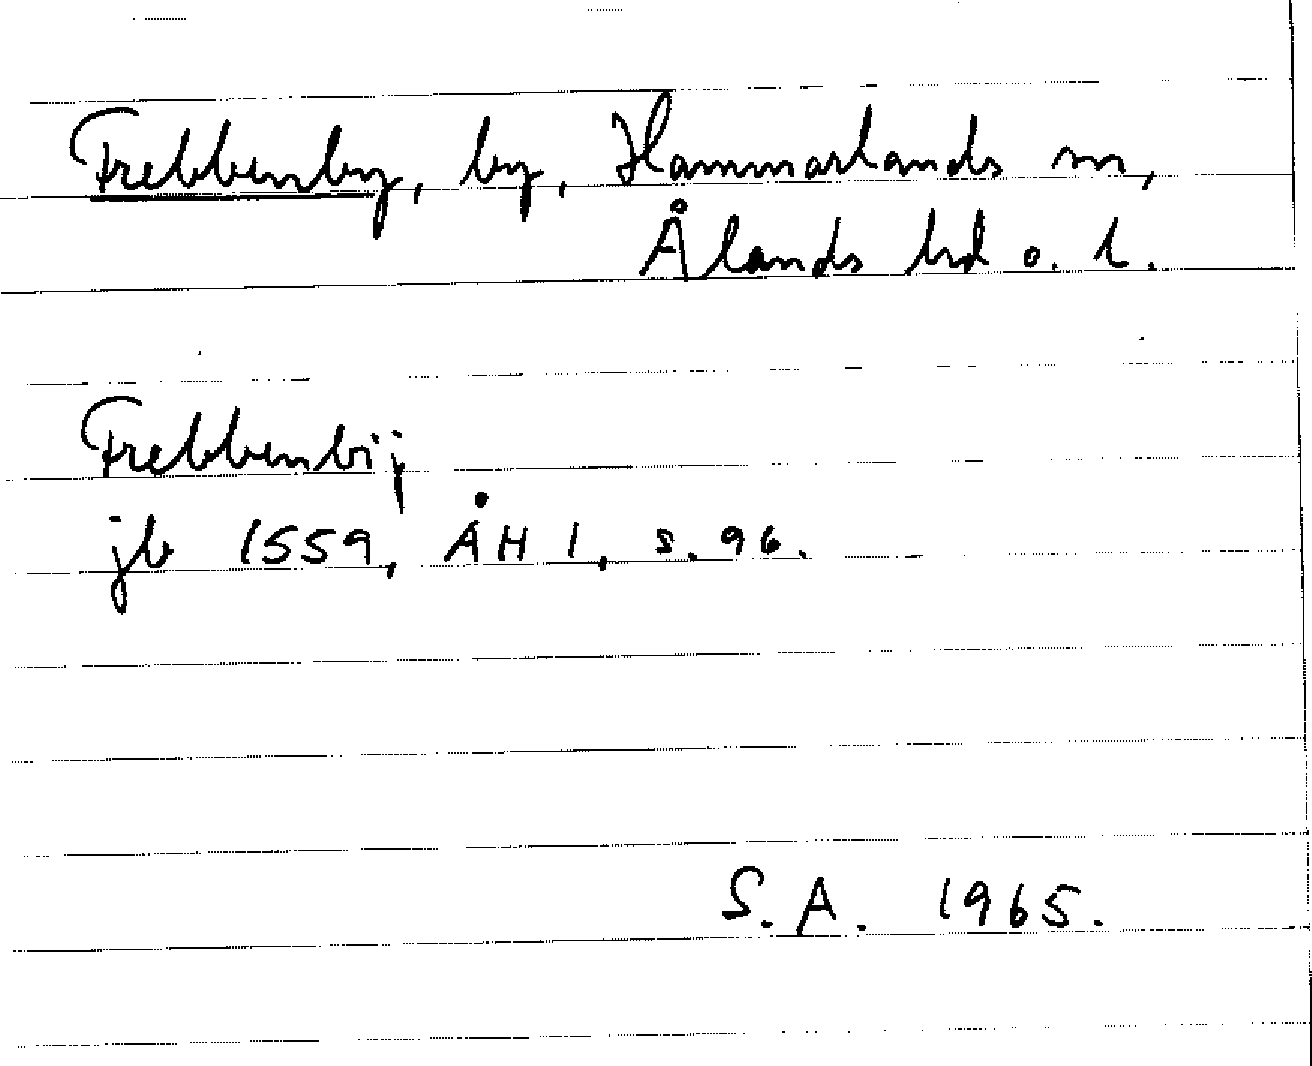 Frebbenby, by, Hammarlands sn,
Ålands hd o. l.
Frebbenbij
jb 1559, ÅH 1, s. 96.
S.A. 1965.